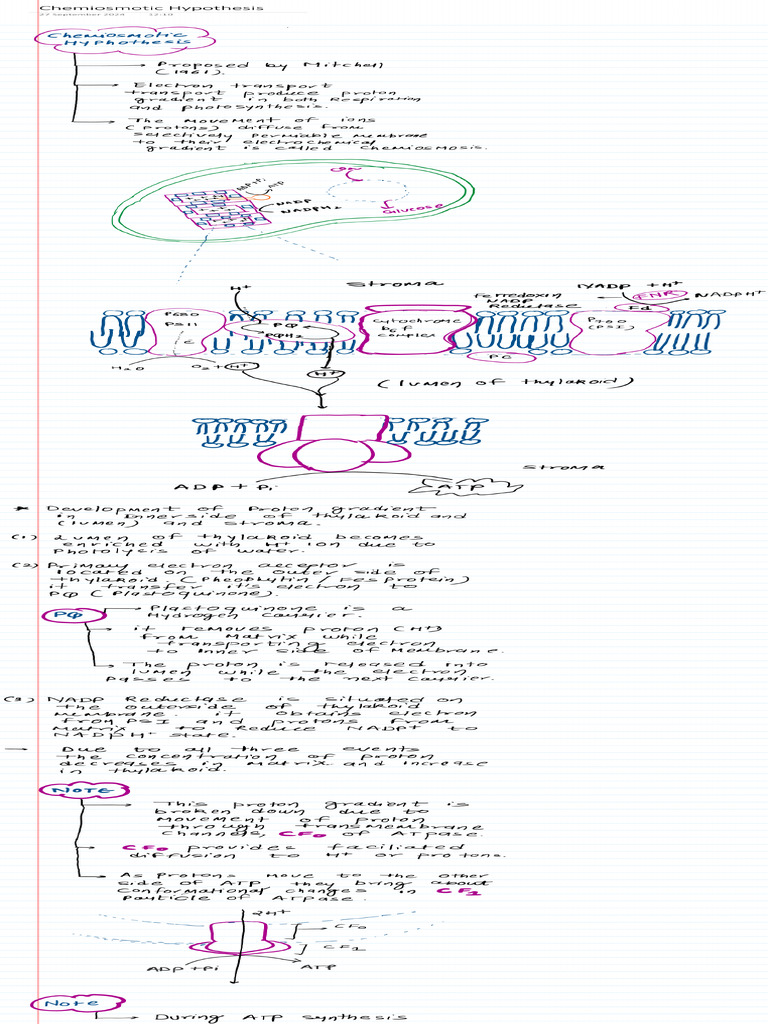 Chemiosmotic Hypothesis
27 September 2024 12:10
Chemiosmotic
Hyphothesis
Proposed by Mitchell
(1961).
Electron transport
transport produce proton
gradient in both Respiration
and photosynthesis.
The movement of ions
(protons) diffuse from
selectively permiable membrane
to their electrochemical
gradient is called chemiosmosis.
ADP+Pi
ATP
NADP
NADPH2
Glucose
H+
Stroma
Ferredoxin
NADP
Reductase
NADP +H+
FNR
NADPH+
Fd
P680
PSII
PQ
PQH2
Cytochrome
b6f
complex
P700
(PSI)
PC
H2O
O2+H+
H+
(lumen of thylakoid)
Stroma
ADP + Pi
ATP
* Development of Proton gradient
in innerside of thylakoid and
(lumen) and stroma.
(1) Lumen of thylakoid becomes
enriched with H+ ion due to
Photolysis of water.
(2) Primary electron acceptor is
located on the outer side of
thylakoid. (Pheophytin / FeS protein)
it transfer it's electron to
PQ (Plastoquinone).
PQ
Plastoquinone is a
Hydrogen carrier.
it removes proton (H+)
from Matrix while
transporting electron
to inner side of Membrane.
The proton is released into
lumen while the electron
passes to the next carrier.
(3) NADP Reductase is situated on
the outerside of thylakoid
membrane. it obtains electron
from PSI and protons from
Matrix to Reduce NADP+ to
NADPH+ state.
— Due to all three events
the concentration of proton
decreases in Matrix and increase
in thylakoid.
NOTE
This proton gradient is
broken down due to
movement of proton
through transmembrane
channels, CF0 of ATpase.
CF0 provides faciliated
diffusion to H+ or protons.
As protons move to the other
side of ATP they bring about
conformational changes in CF1
particle of ATpase.
2H+
CF0
CF1
ADP+Pi
ATP
Note
During ATP synthesis